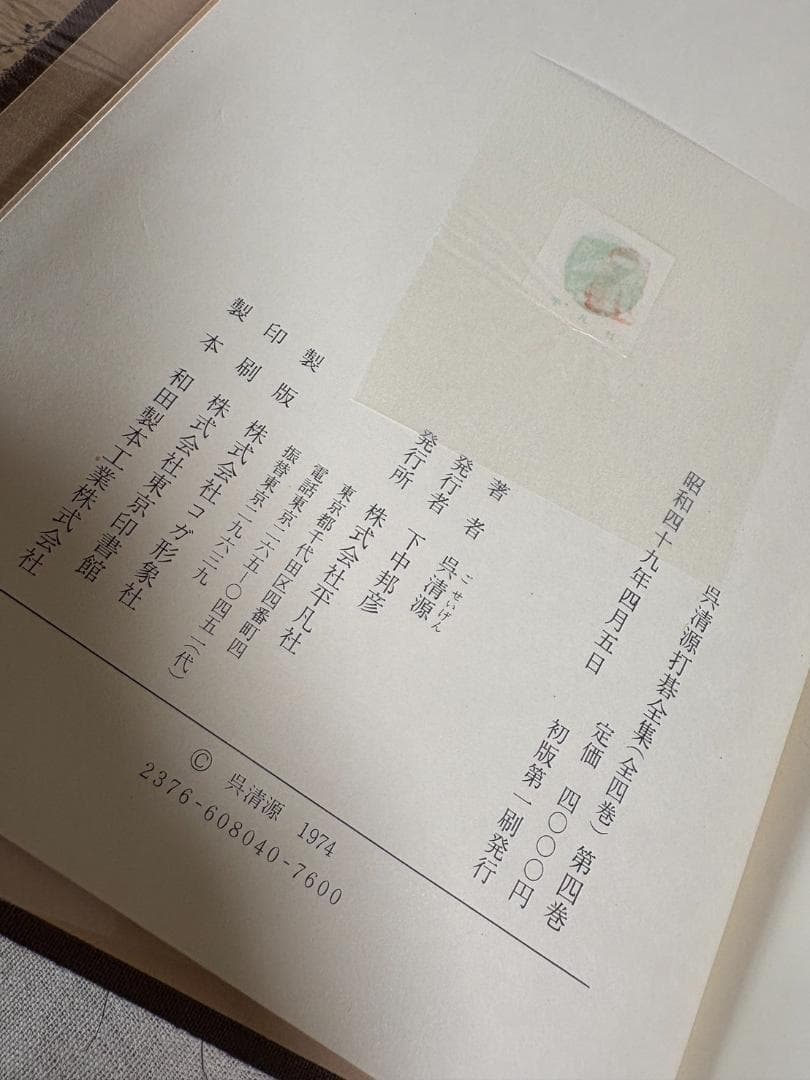 呉清源打碁全集(全四巻) 第四巻
定価 四〇〇〇円
昭和四十九年四月五日 初版第一刷発行
著者 呉清源
ごせいげん
発行者 下中邦彦
発行所 株式会社平凡社
東京都千代田区四番町四
電話東京二六五―〇四五一(代)
振替東京二九六三九
製版 株式会社コガ形象社
印刷 株式会社東京印書館
製本 和田製本工業株式会社
© 呉清源 1974
2376-608040-7600